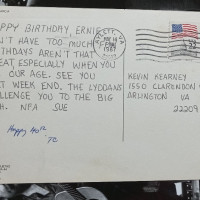 HAPPY BIRTHDAY, ERNIE
DON'T HAVE TOO MUCH
BIRTHDAYS AREN'T THAT
GREAT ESPECIALLY WHEN YOU
OUR AGE. SEE YOU
WEEK END. THE
CHALLENGE YOU TO THE BIG
SUE
Happy 40th
VA
PM
1987
KEVIN KEARNEY
1550 CLARENDON
ARLINGTON VA
22209